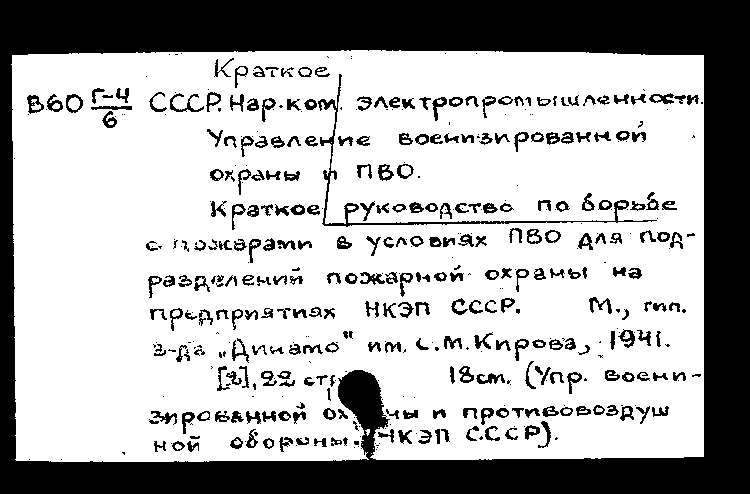 Краткое
В60 Г-4/6 СССР. Нар. ком. электропромышленности.
Управление военизированной
охраны и ПВО.
Краткое руководство по борьбе
с пожарами в условиях ПВО для под-
разделений пожарной охраны на
предприятиях НКЭП СССР. М., тип.
з-да „Динамо" им. С.М. Кирова, 1941.
[2], 22 стр. 18см. (Упр. воени-
зированной охраны и противовоздуш
ной обороны. НКЭП СССР).